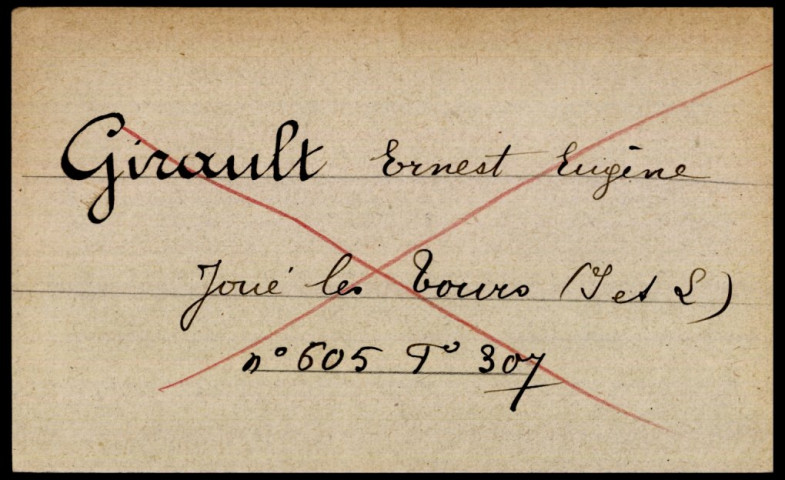 Girault Ernest Eugène
Joué les Tours (I et L)
n° 605 F° 307